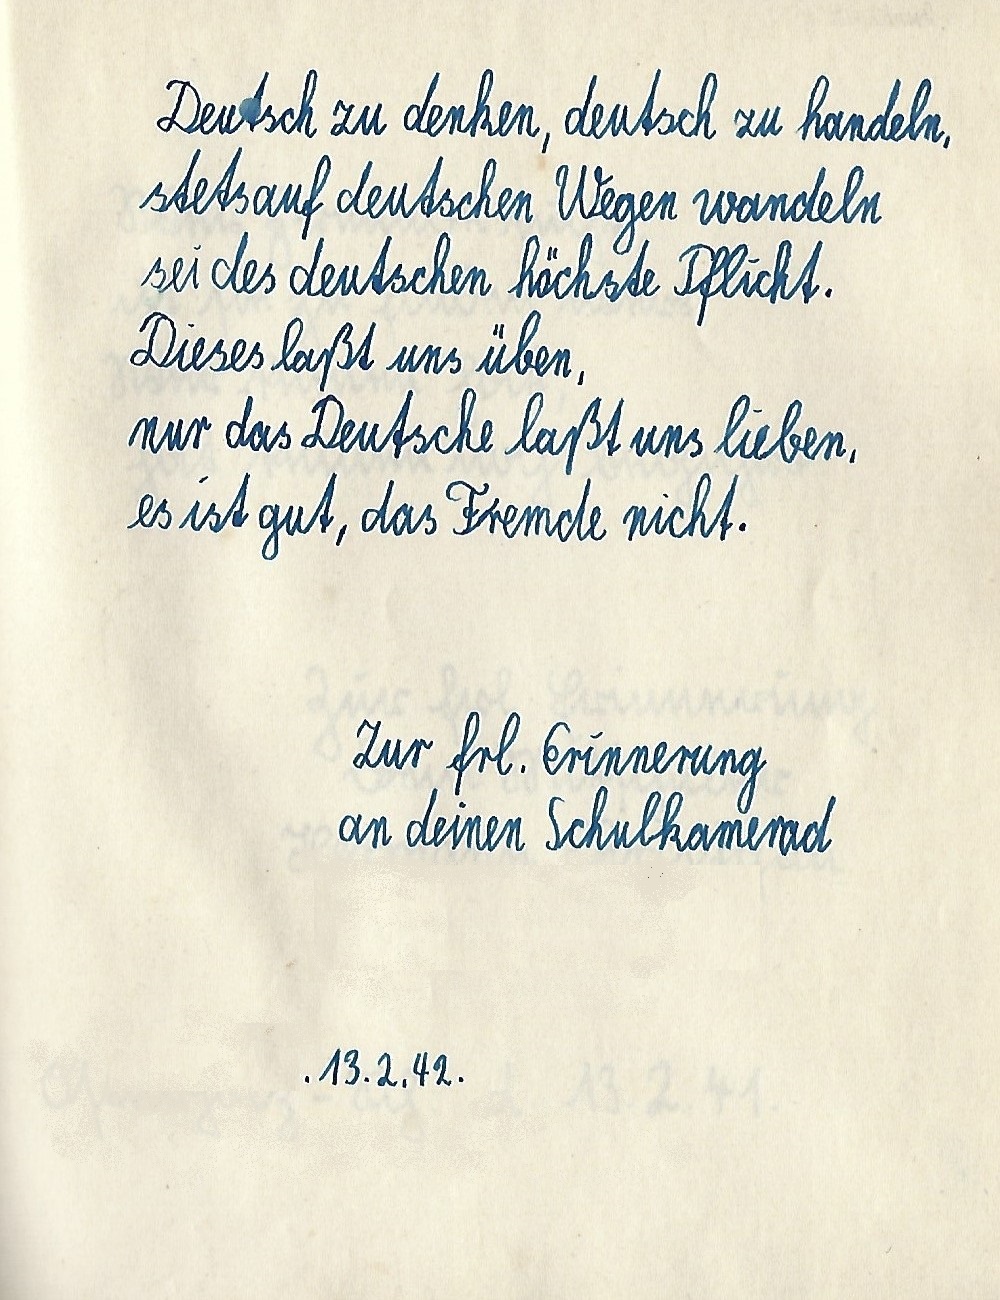 Deutsch zu denken, deutsch zu handeln,
stets auf deutschen Wegen wandeln
sei des deutschen höchste Pflicht.
Dieses laßt uns üben,
nur das Deutsche laßt uns lieben,
es ist gut, das Fremde nicht.
Zur frl. Erinnerung
an deinen Schulkamerad
.13.2.42.